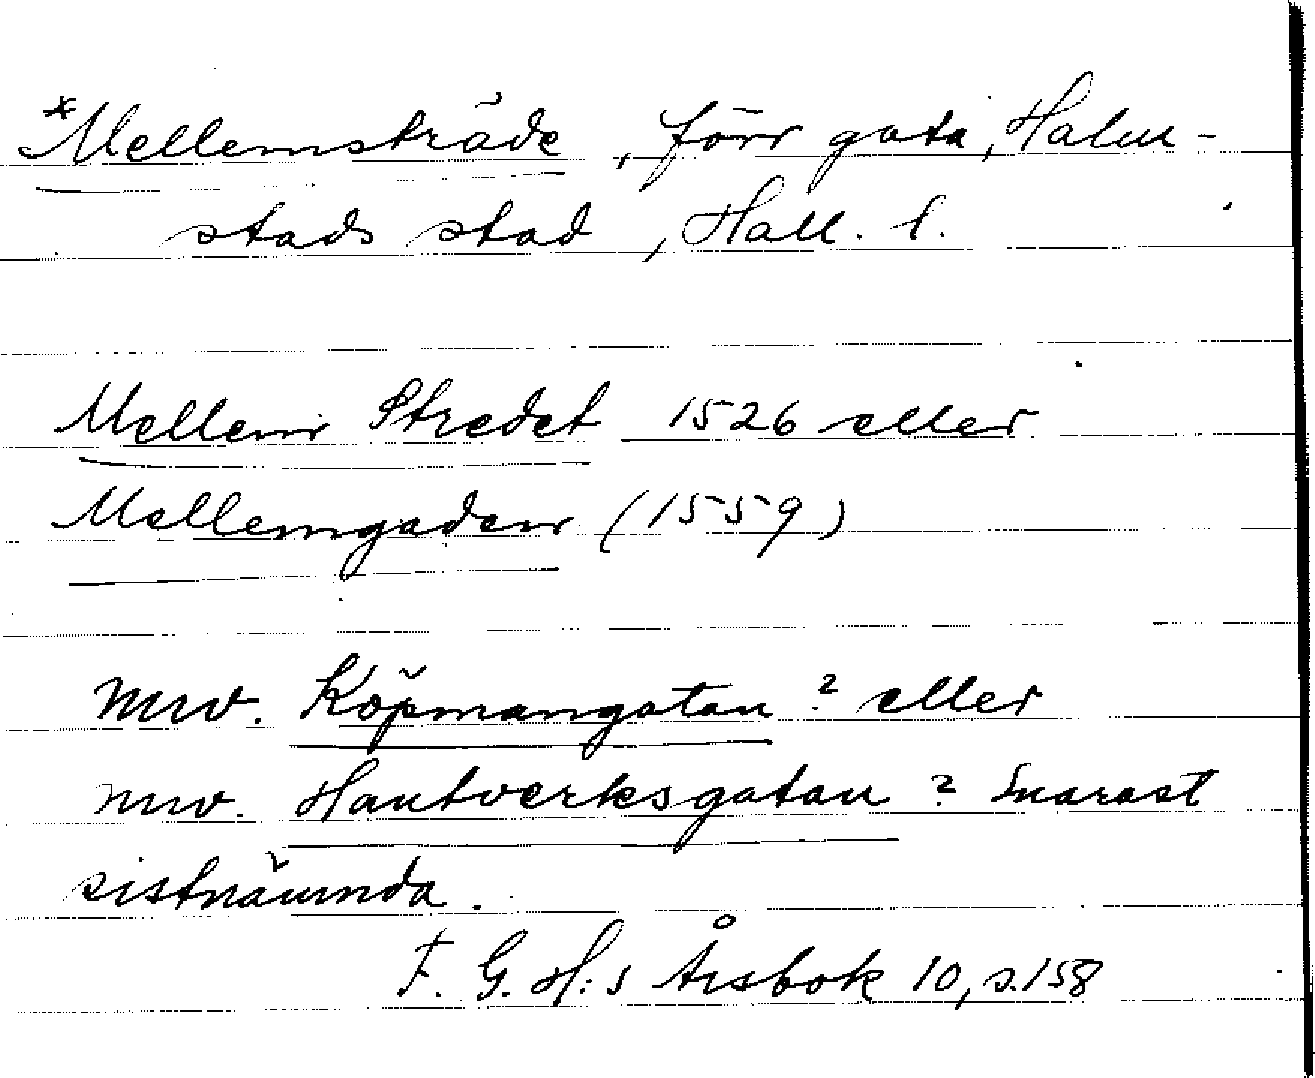 *Mellemsträde, förr gata, Halm-
stads stad, Hall. l.
Mellem Stredet 1526 eller
Mellemgaden (1559)
nuv. Köpmangatan ? eller
nuv. Hantverksgatan ? Snarast
sistnämnda.
F. G. H:s Årsbok 10, s. 158